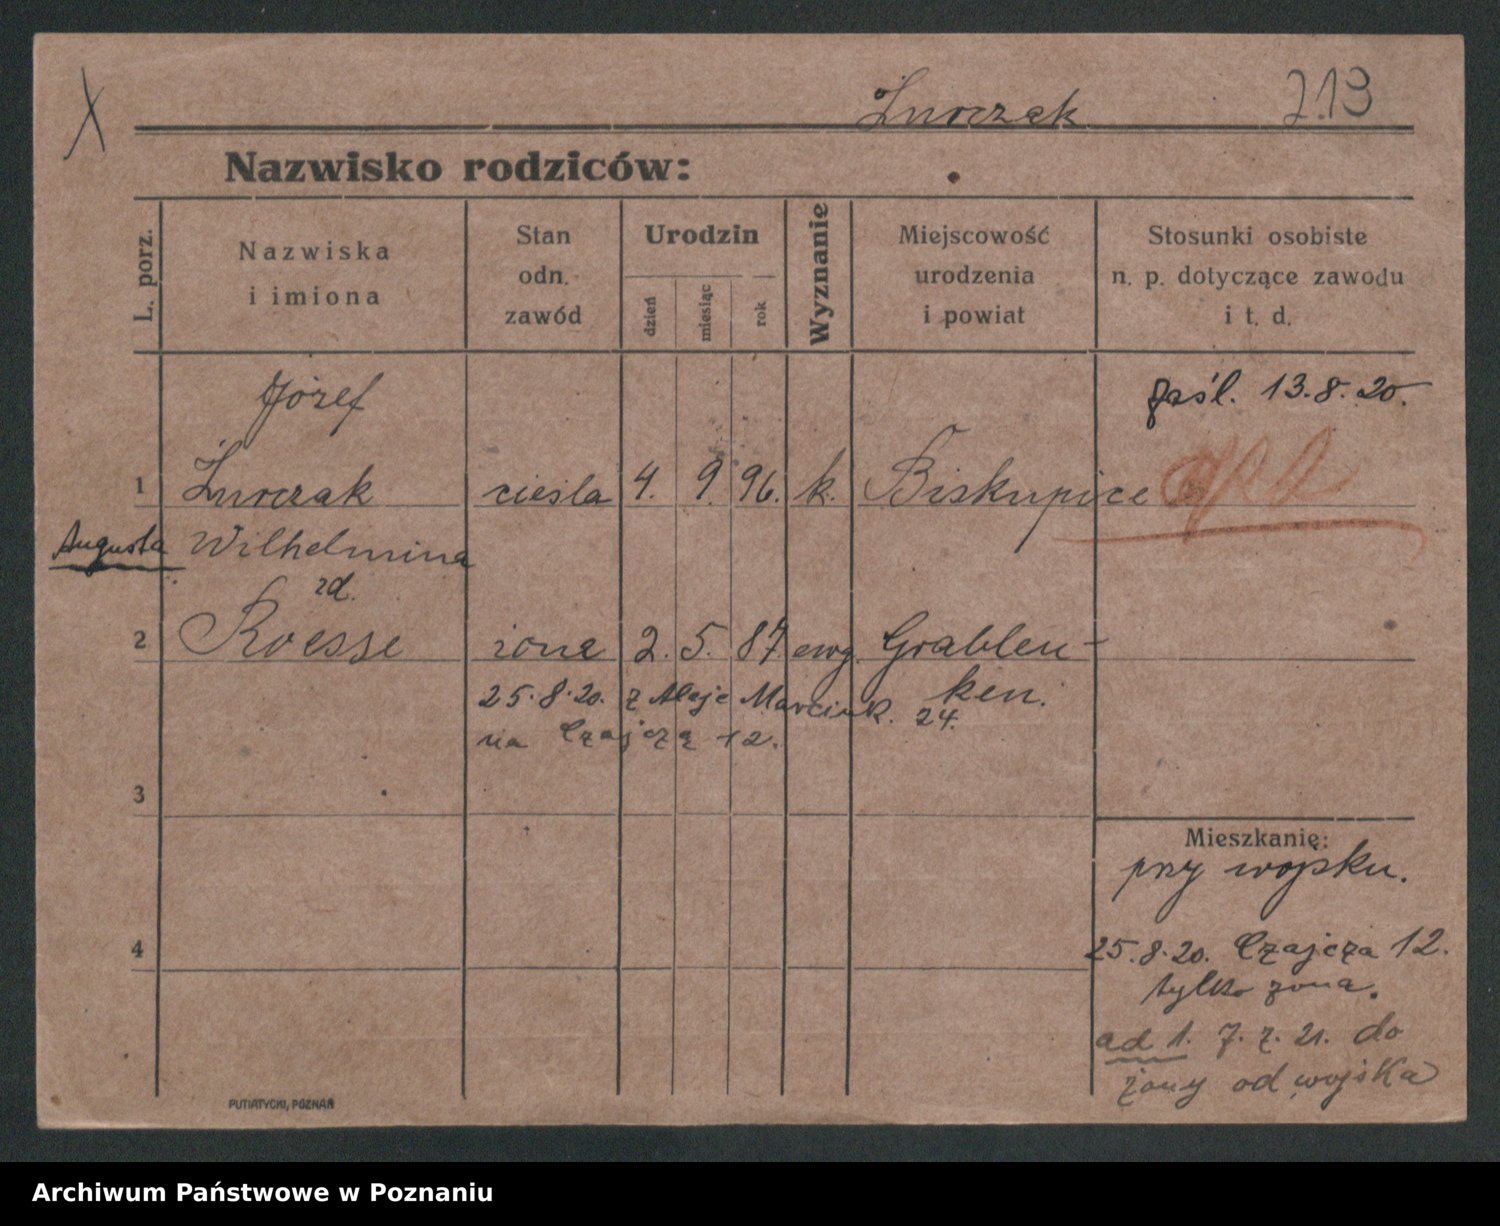 X
Żurczak 213
Nazwisko rodziców:
L. porz.
Nazwiska
i imiona
Stan
odn.
zawód
Urodzin
dzień
miesiąc
rok
Wyznanie
Miejscowość
urodzenia
i powiat
Stosunki osobiste
n. p. dotyczące zawodu
i t. d.
Józef
1 Żurczak cieśla 4. 9. 96. k. Biskupice
13.8.20.
Augusta Wilhelmina
zd.
2 Roesse żona 2. 5. 87. ewg. Grablau-
ken.
25.8.20. z Aleje Marcink. 24.
na Czajczą 12.
3
Mieszkanię:
przy wojsku.
4
25.8.20. Czajcza 12.
tylko żona.
ad 1. 7. 7. 21. do
żony od wojska
PUTIATYCKI, POZNAŃ
Archiwum Państwowe w Poznaniu